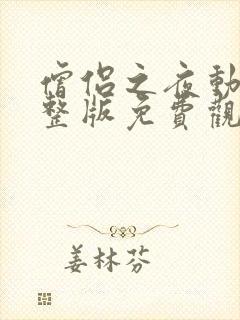 僧侶之夜動
整版免費觀
姜林芬